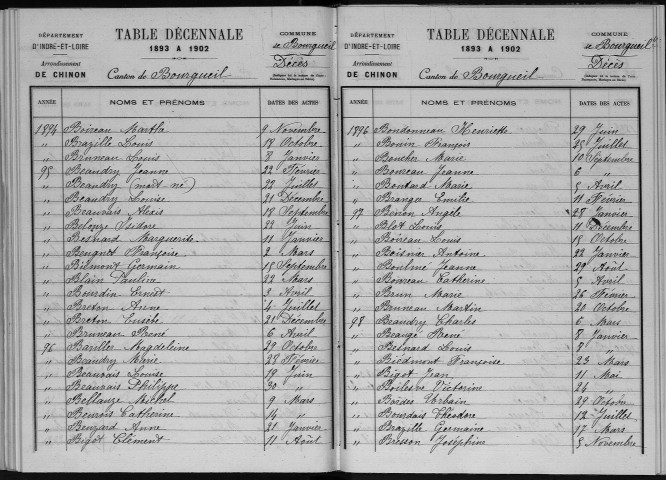 DÉPARTEMENT
D'INDRE-ET-LOIRE
Arrondissement
DE CHINON
TABLE DÉCENNALE
1893 A 1902
Canton de Bourgueil
COMMUNE
de Bourgueil
Décès
ANNÉE NOMS ET PRÉNOMS DATES DES ACTES
1894 Boireau Martha 9 Novembre
" Brazille Louis 18 Octobre
" Bruneau Louis 8 Janvier
95 Beaudry Jeanne 22 Février
" Beaudry (mort né) 22 Juillet
" Beaudry Louise 21 Décembre
" Beauvais Alexis 18 Septembre
" Belouze Isidore 22 Juin
" Besnard Marguerite 11 Janvier
" Bengnet Françoise 2 Mars
" Bilmont Germain 15 Septembre
" Blain Pauline 22 Mars
" Bourdin Ernest 3 Avril
" Breton Anne 4 Juillet
" Breton 21 Décembre
" Bruneau René 6 Avril
96 Bariller Magdeleine 29 Octobre
" Beaudry Marie 28 Février
" Beauvais Louise 19 Juin
" Beauvais Philippe 30 "
" Michel 9 Mars
" Catherine 14 "
" Bouzard Anne 21 Janvier
" Bigot Clément 11 Août
DÉPARTEMENT
D'INDRE-ET-LOIRE
Arrondissement
DE CHINON
TABLE DÉCENNALE
1893 A 1902
Canton de Bourgueil
COMMUNE
de Bourgueil
Décès
ANNÉE NOMS ET PRÉNOMS DATES DES ACTES
1896 Bondonneau Henriette 29 Juin
" Bonin François 15 Juillet
" Boucher Marie 10 Septembre
" Boureau Jeanne 6 "
" Boutard Marie 5 Avril
" Branger Emilie 11 Février
97 Benon Angèle 28 Janvier
" Blot Louis 11 Décembre
" Boireau Louis 15 Octobre
" Boisnier Antoine 22 Janvier
" Boulmé Jeanne 29 Août
" Boureau Catherine 5 Avril
" Brun Marie 26 Février
" Bruneau Martin 20 Octobre
98 Beaudry Charles 6 Mars
" Beaugé René 7 Janvier
" Besnard Louis 8 "
" Biedmont Françoise 23 Mars
" Bigot Jean 11 Mai
" Boilesve Victorine 24 "
" Urbain 29 Octobre
" Bourdais Théodore 12 Juillet
" Brazille Germaine 17 Mars
" Bresson Joséphine 5 Novembre